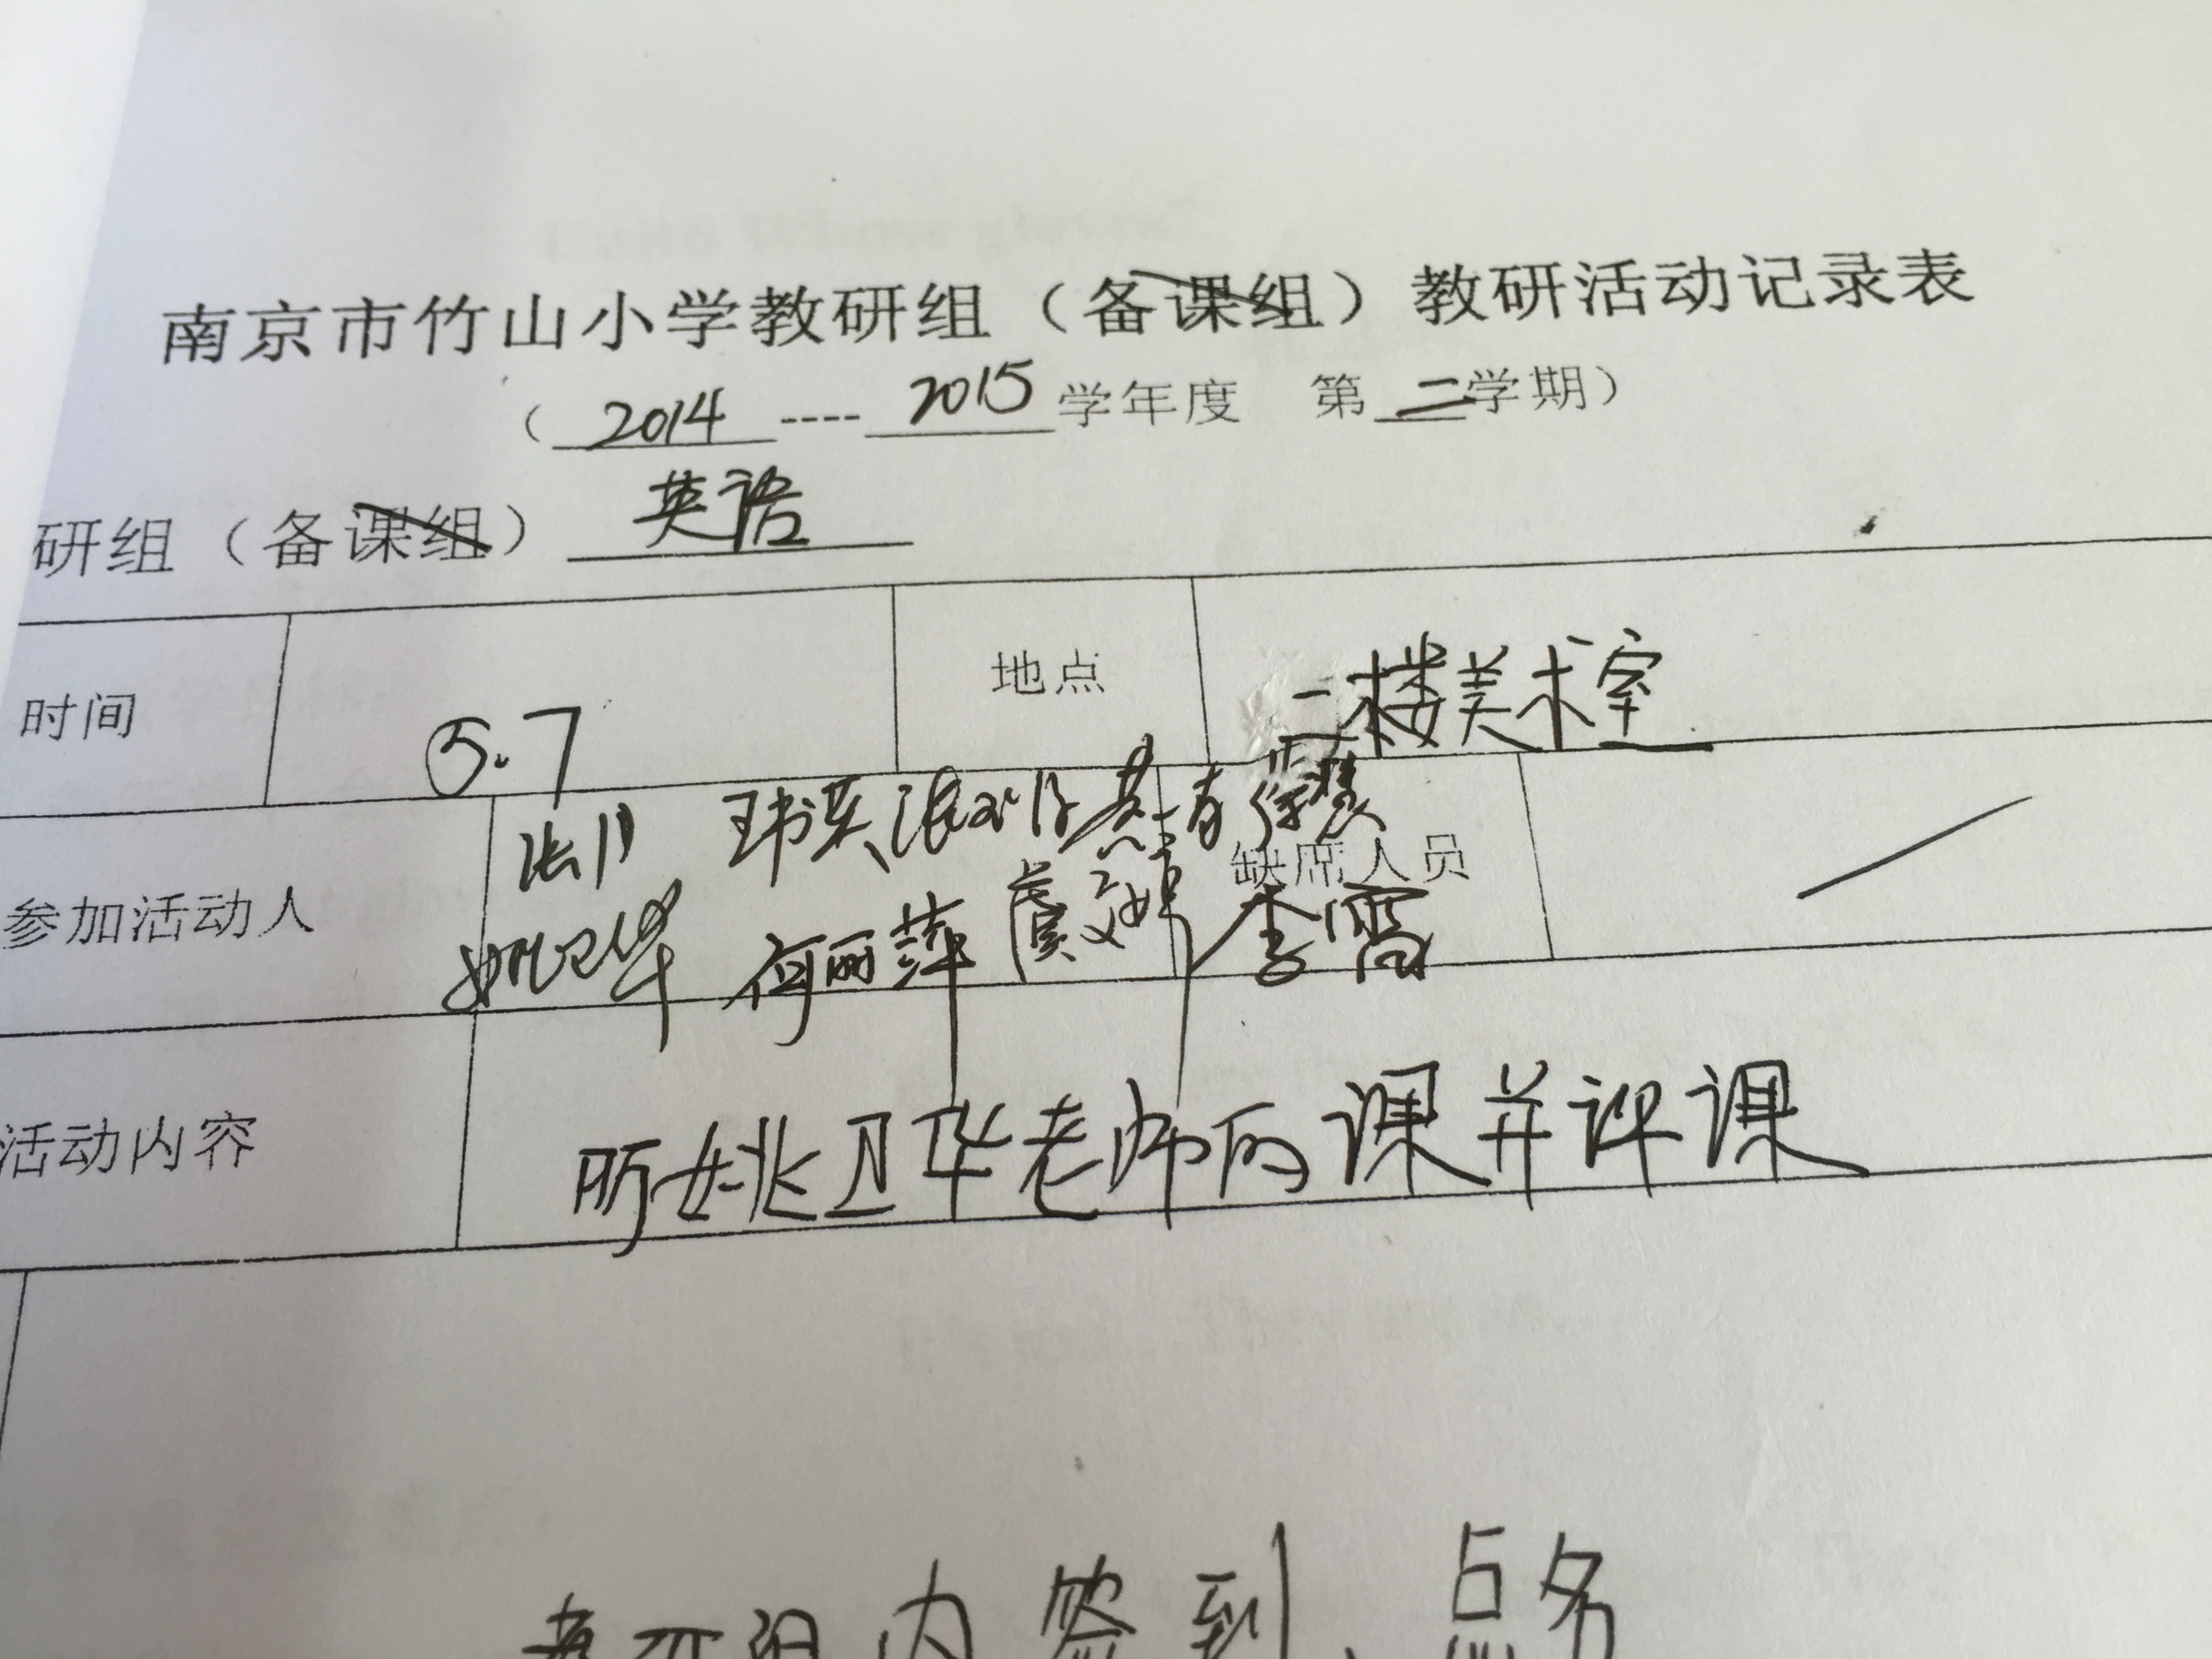 南京市竹山小学教研组（备课组）教研活动记录表
（2014----2015学年度 第二学期）
研组（备课组）英语
时间 5.7 地点 二楼美术室
参加活动人 缺席人员
姚卫华 何丽萍 虞文婷 李雪
活动内容 听姚卫华老师的课并评课
教研组内签到、点名